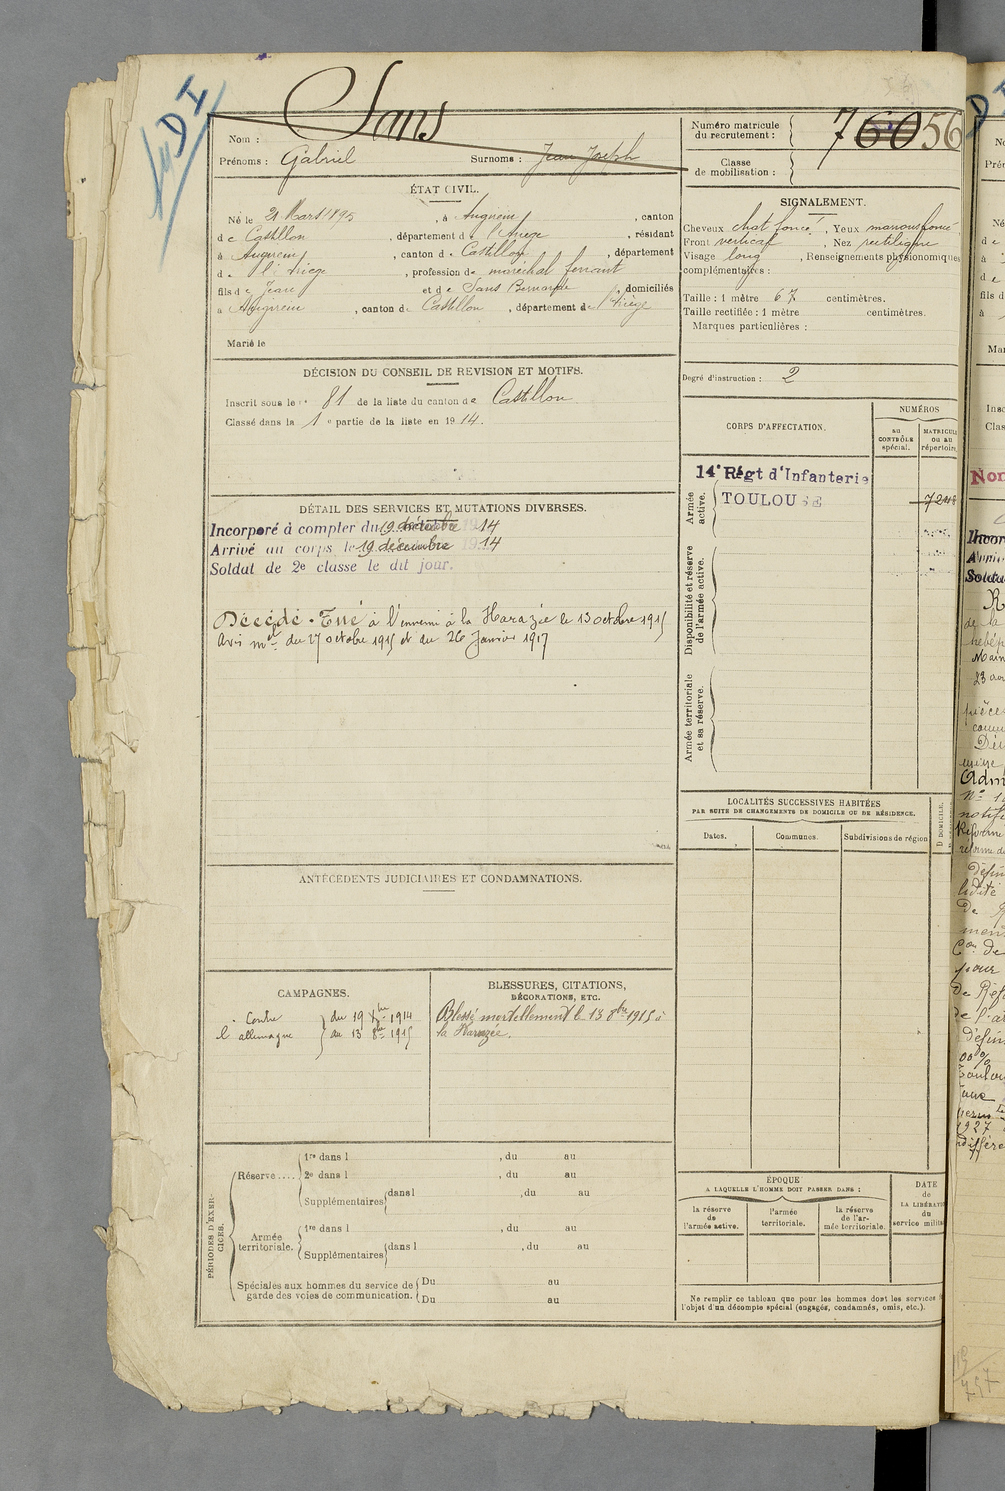 DI
Sans
Nom :
Prénoms : Gabriel Surnoms : Jean Joseph
Numéro matricule du recrutement : 76056
Classe de mobilisation :
ÉTAT CIVIL.
Né le 21 Mars 1895, à Augirein, canton
de Castillon, département de l'Ariège, résidant
à Augirein, canton de Castillon, département
de l'Ariège, profession de maréchal ferrant
fils de Jean et de Sans Bernarde, domiciliés
à Augirein, canton de Castillon, département de l'Ariège
Marié le
SIGNALEMENT.
Cheveux chat foncé, Yeux marrons foncé
Front vertical, Nez rectiligne
Visage long, Renseignements physionomiques
complémentaires :
Taille : 1 mètre 67 centimètres.
Taille rectifiée : 1 mètre centimètres.
Marques particulières :
Degré d'instruction : 2
DÉCISION DU CONSEIL DE REVISION ET MOTIFS.
Inscrit sous le n° 81 de la liste du canton de Castillon
Classé dans la 1e partie de la liste en 1914.
CORPS D'AFFECTATION.
NUMÉROS
au CONTRÔLE spécial.
MATRICULE ou au répertoire.
14e Régt d'Infanterie
TOULOUSE
7248
Armée active.
Disponibilité et réserve de l'armée active.
Armée territoriale et sa réserve.
DÉTAIL DES SERVICES ET MUTATIONS DIVERSES.
Incorporé à compter du 19 décembre 1914
Arrivé au corps le 19 décembre 1914
Soldat de 2e classe le dit jour.
Décédé. Tué à l'ennemi à la Harazée le 13 octobre 1915
Avis mel du 27 octobre 1915 et du 26 Janvier 1917
LOCALITÉS SUCCESSIVES HABITÉES
PAR SUITE DE CHANGEMENTS DE DOMICILE OU DE RÉSIDENCE.
Dates. Communes. Subdivisions de région
ANTÉCÉDENTS JUDICIAIRES ET CONDAMNATIONS.
CAMPAGNES.
Contre l'allemagne
du 19 Xbre 1914
au 13 8bre 1915
BLESSURES, CITATIONS,
DÉCORATIONS, ETC.
Blessé mortellement le 13 8bre 1915 à
la Harazée.
PÉRIODES D'EXERCICES.
Réserve....
1re dans l , du au
2e dans l , du au
Supplémentaires dans l , du au
Armée territoriale.
1re dans l , du au
Supplémentaires dans l , du au
Spéciales aux hommes du service de garde des voies de communication.
Du au
Du au
ÉPOQUE
A LAQUELLE L'HOMME DOIT PASSER DANS :
la réserve de l'armée active.
l'armée territoriale.
la réserve de l'armée territoriale.
DATE
de
LA LIBÉRAT
du
service milit
Ne remplir ce tableau que pour les hommes dont les services
l'objet d'un décompte spécial (engagés, condamnés, omis, etc.).